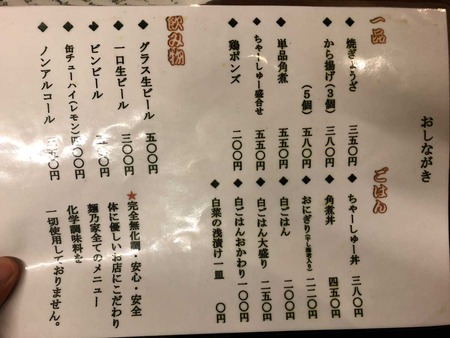 おしながき
一品
◆ 焼ぎょうざ 三五〇円
◆ から揚げ(3個) 三八〇円
(5個) 五八〇円
◆ 単品角煮 五五〇円
◆ ちゃーしゅー盛合せ 五五〇円
◆ 鶏ポンズ 二〇〇円
ごはん
◆ ちゃーしゅー丼 三八〇円
◆ 角煮丼 四五〇円
◆ おにぎり 一二〇円
◆ 白ごはん 二〇〇円
◆ 白ごはん大盛り 二五〇円
◆ 白ごはんおかわり 一〇〇円
◆ 白菜の浅漬け一皿 〇円
飲み物
◆ グラス生ビール 五〇〇円
◆ 一口生ビール 三〇〇円
◆ ビンビール
◆ 缶チューハイ(レモン)
◆ ノンアルコール
★完全無化調・安心・安全
体に優しいお店にこだわり
麺乃家全てのメニュー
化学調味料を
一切使用しておりません。